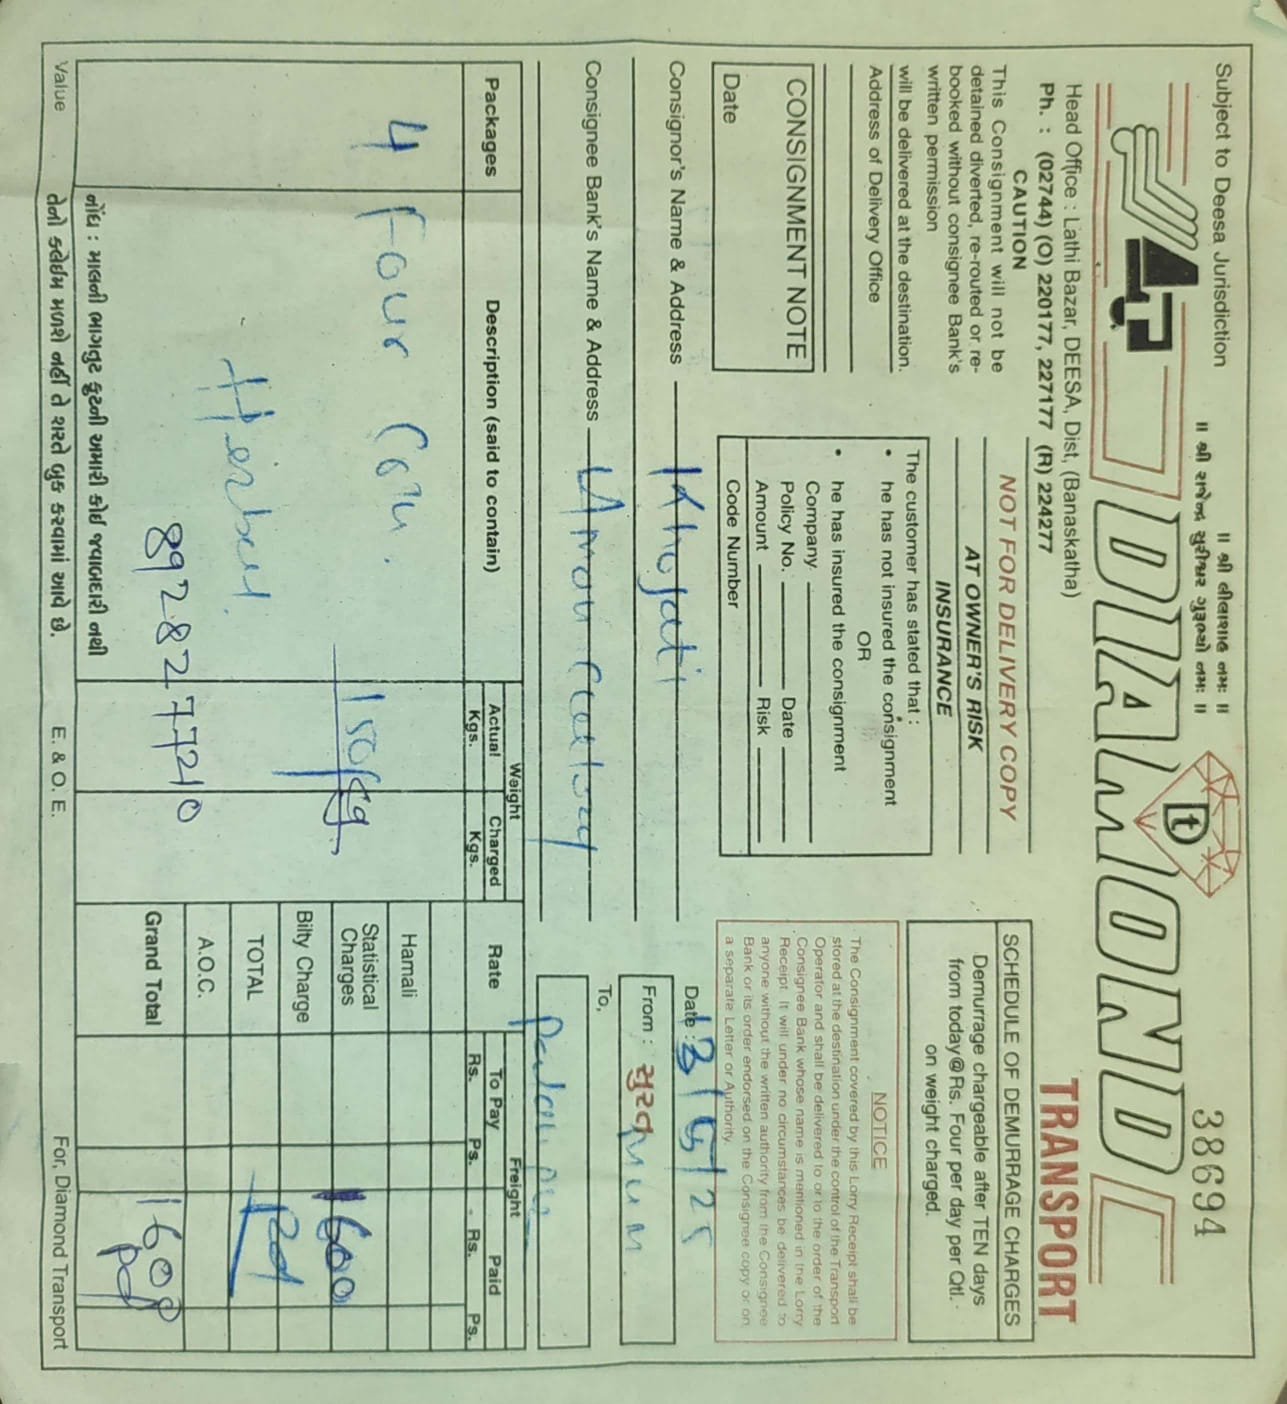 Subject to Deesa Jurisdiction
॥ શ્રી લીલાશાહ નમઃ ॥
॥ શ્રી રાજેન્દ્ર સુરીશ્વર ગુરૂભ્યો નમઃ ॥
38694
DIAMOND
t
TRANSPORT
Head Office : Lathi Bazar, DEESA, Dist, (Banaskatha)
Ph. : (02744) (O) 220177, 227177 (R) 224277
CAUTION
This Consignment will not be
detained diverted, re-routed or re-
booked without consignee Bank's
written permission
will be delivered at the destination.
Address of Delivery Office
CONSIGNMENT NOTE
Date
NOT FOR DELIVERY COPY
AT OWNER'S RISK
INSURANCE
The customer has stated that :
• he has not insured the consignment
OR
• he has insured the consignment
Company
Policy No. Date
Amount Risk
Code Number
SCHEDULE OF DEMURRAGE CHARGES
Demurrage chargeable after TEN days
from today@Rs. Four per day per Qtl.
on weight charged.
NOTICE
The Consignment covered by this Lorry Receipt shall be
stored at the destination under the control of the Transport
Operator and shall be delivered to or to the order of the
Consignee Bank whose name is mentioned in the Lorry
Receipt. It will under no circumstances be delivered to
anyone without the written authority from the Consignee
Bank or its order endorsed on the Consignee copy or on
a separate Letter or Authority.
Consignor's Name & Address
Date : 13/5/25
From : સુરત
Consignee Bank's Name & Address
To,
Packages
Description (said to contain)
Weight
Actual Kgs.
Charged Kgs.
Rate
Freight
To Pay
Rs. Ps.
Paid
Rs. Ps.
4 Four
150 kg
Hamali
Statistical Charges 1600
Bilty Charge
TOTAL Pd
A.O.C.
8928277210
Grand Total 1600
Pd
નોંધ : માલની ભાગતુટ ફુટની અમારી કોઈ જવાબદારી નથી
તેનો કલેઈમ મળશે નહીં તે શરતે બુક કરવામાં આવે છે.
Value
E. & O. E.
For, Diamond Transport